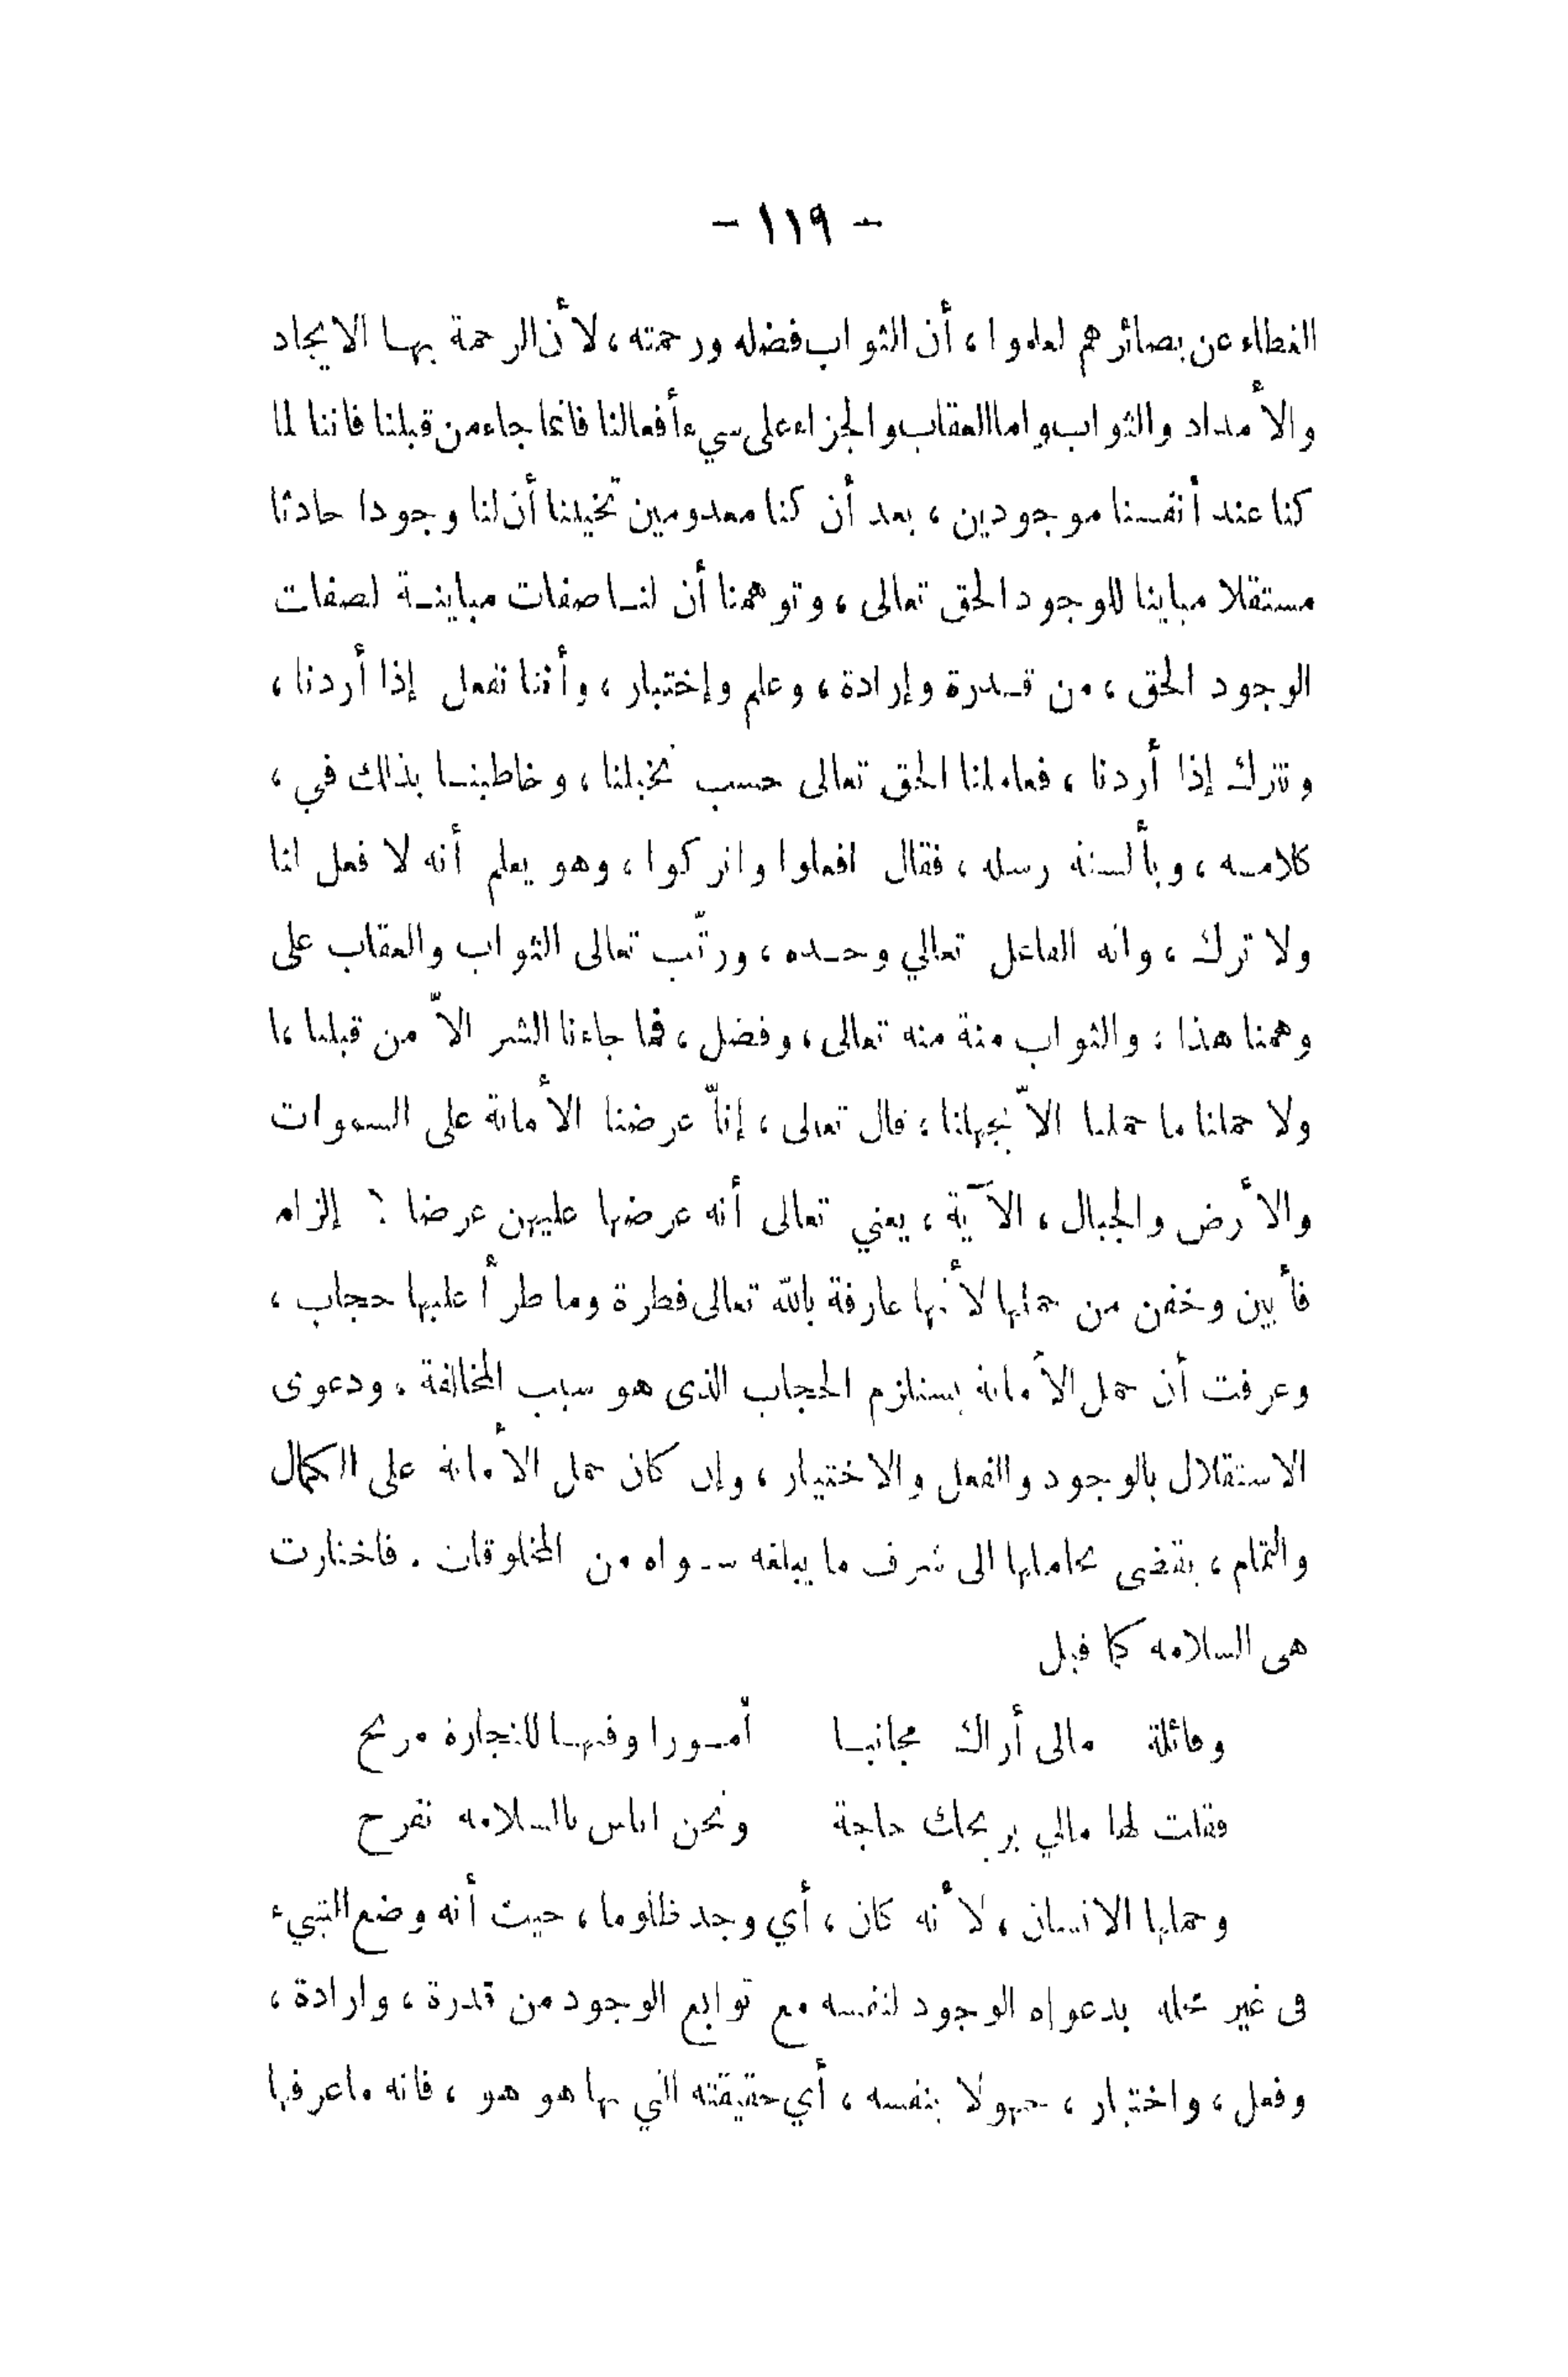 - ١١٩ -
الغطاء عن بصائرهم لعلموا ، أن الثواب فضله ورحمته ، لأن الرحمة بها الايجاد
والأمداد والثواب واما العقاب والجزاء على سيء أفعالنا فانما جاء من قبلنا فاننا لما
كنا عند أنفسنا موجودين ، بعد أن كنا معدومين تخيلنا أن لنا وجودا حادثا
مستقلا مباينا للوجود الحق تعالى ، وتوهمنا أن لنا صفات مباينة لصفات
الوجود الحق ، من قدرة وإرادة ، وعلم وإختيار ، وأننا نفعل إذا أردنا ،
ونترك إذا أردنا ، فعاملنا الحق تعالى حسب تخيلنا ، وخاطبنا بذلك في ،
كلامه ، وبألسنة رسله ، فقال افعلوا واتركوا ، وهو يعلم أنه لا فعل لنا
ولا ترك ، وانه الفاعل تعالي وحده ، ورتّب تعالى الثواب والعقاب على
وهمنا هذا ؛ والثواب منة منه تعالى ، وفضل ، فما جاءنا الشر الاّ من قبلنا
ولا حملنا ما حملنا الاّ بجهلنا ؛ قال تعالى ، إناّ عرضنا الأمانة على السموات
والأرض والجبال ، الآية ، يعني تعالى أنه عرضها عليهن عرضا لا إلزام
فأبين وخفن من حملها لأنها عارفة بالله تعالى فطرة وما طرأ عليها حجاب ،
وعرفت أن حمل الأمانة يستلزم الحجاب الذى هو سبب المخالفة ، ودعوى
الاستقلال بالوجود والفعل والاختيار ، وإن كان حمل الأمانة على الكمال
والتمام ، يقضى بحاملها الى شرف ما يبلغه سواه من المخلوقات . فاختارت
هى السلامه كما قيل
وقائلة مالى أراك مجانبا أمورا وفيها للتجارة مربح
فقلت لها مالي بربحك حاجة ونحن اناس بالسلامه نفرح
وحملها الانسان ، لأنه كان ، أي وجد ظلوما ، حيث أنه وضع الشيء
فى غير محله بدعواه الوجود لنفسه مع توابع الوجود من قدرة ، وارادة ،
وفعل ، واختيار ، جهولا بنفسه ، أي حقيقته التي بها هو هو ، فانه ما عرفها